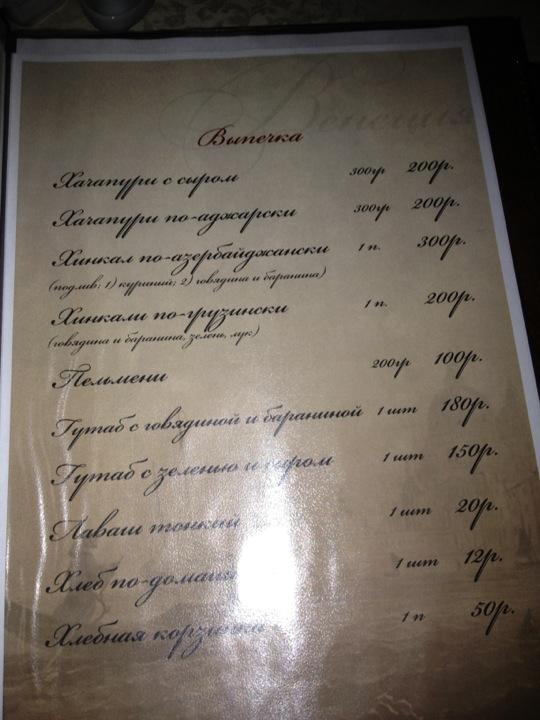 Венеция
Выпечка
Хачапури с сыром 300гр 200р.
Хачапури по-аджарски 300гр 200р.
Хинкал по-азербайджански 1 п. 300р.
(подлив: 1) куриный; 2) говядина и баранина)
Хинкали по-грузински 1 п. 200р.
(говядина и баранина, зелень, лук)
Пельмени 200гр 100р.
Гутаб с говядиной и бараниной 1 шт 180р.
Гутаб с зеленью и сыром 1 шт 150р.
Лаваш тонкий 1 шт 20р.
Хлеб 1 шт 12р.
Хлебная корзинка 1 п 50р.